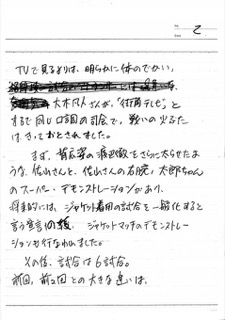 No. 2
TVで見るよりは、明らかに体のでかい、
大木凡人さんが、"街角テレビ"と
まるで同じ口調の司会で、戦いの火ぶた
は、きっておとされました。
まず、背広姿の渡辺徹をさらに太らせたよ
うな、佐山さんと、佐山さんの右腕、太郎ちゃん
のスーパー・デモンストレーションがあり、
将来的には、ジャケット着用の試合を一般化すると
言う宣言の後、ジャケットマッチのデモンストレー
ションも行なわれました。
その後、試合は6試合。
前回、前々回との大きな違いは、